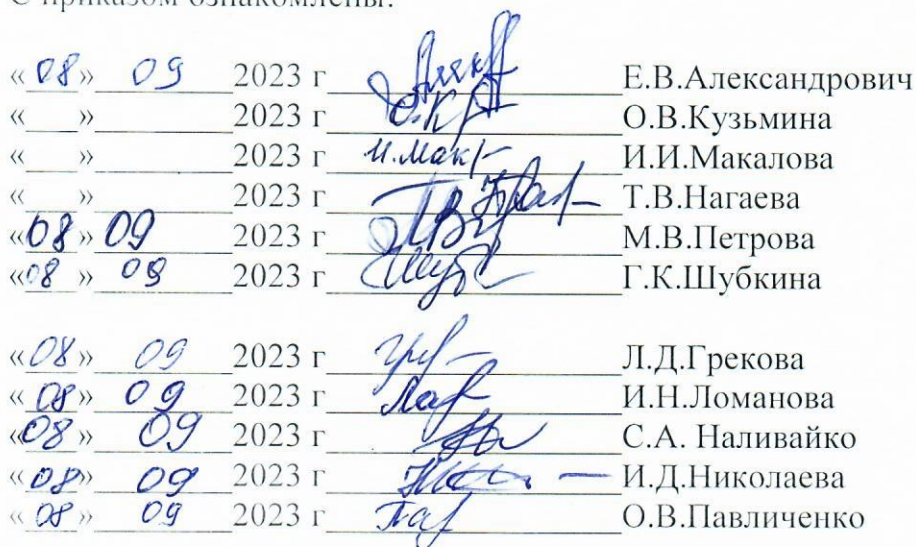 С приказом ознакомлены:
« 08 » 09 2023 г Е.В.Александрович
« » 2023 г О.В.Кузьмина
« » 2023 г И.Мак И.И.Макалова
« » 2023 г Т.В.Нагаева
« 08 » 09 2023 г М.В.Петрова
« 08 » 09 2023 г Г.К.Шубкина
« 08 » 09 2023 г Л.Д.Грекова
« 08 » 09 2023 г И.Н.Ломанова
« 08 » 09 2023 г С.А. Наливайко
« 08 » 09 2023 г И.Д.Николаева
« 08 » 09 2023 г О.В.Павличенко